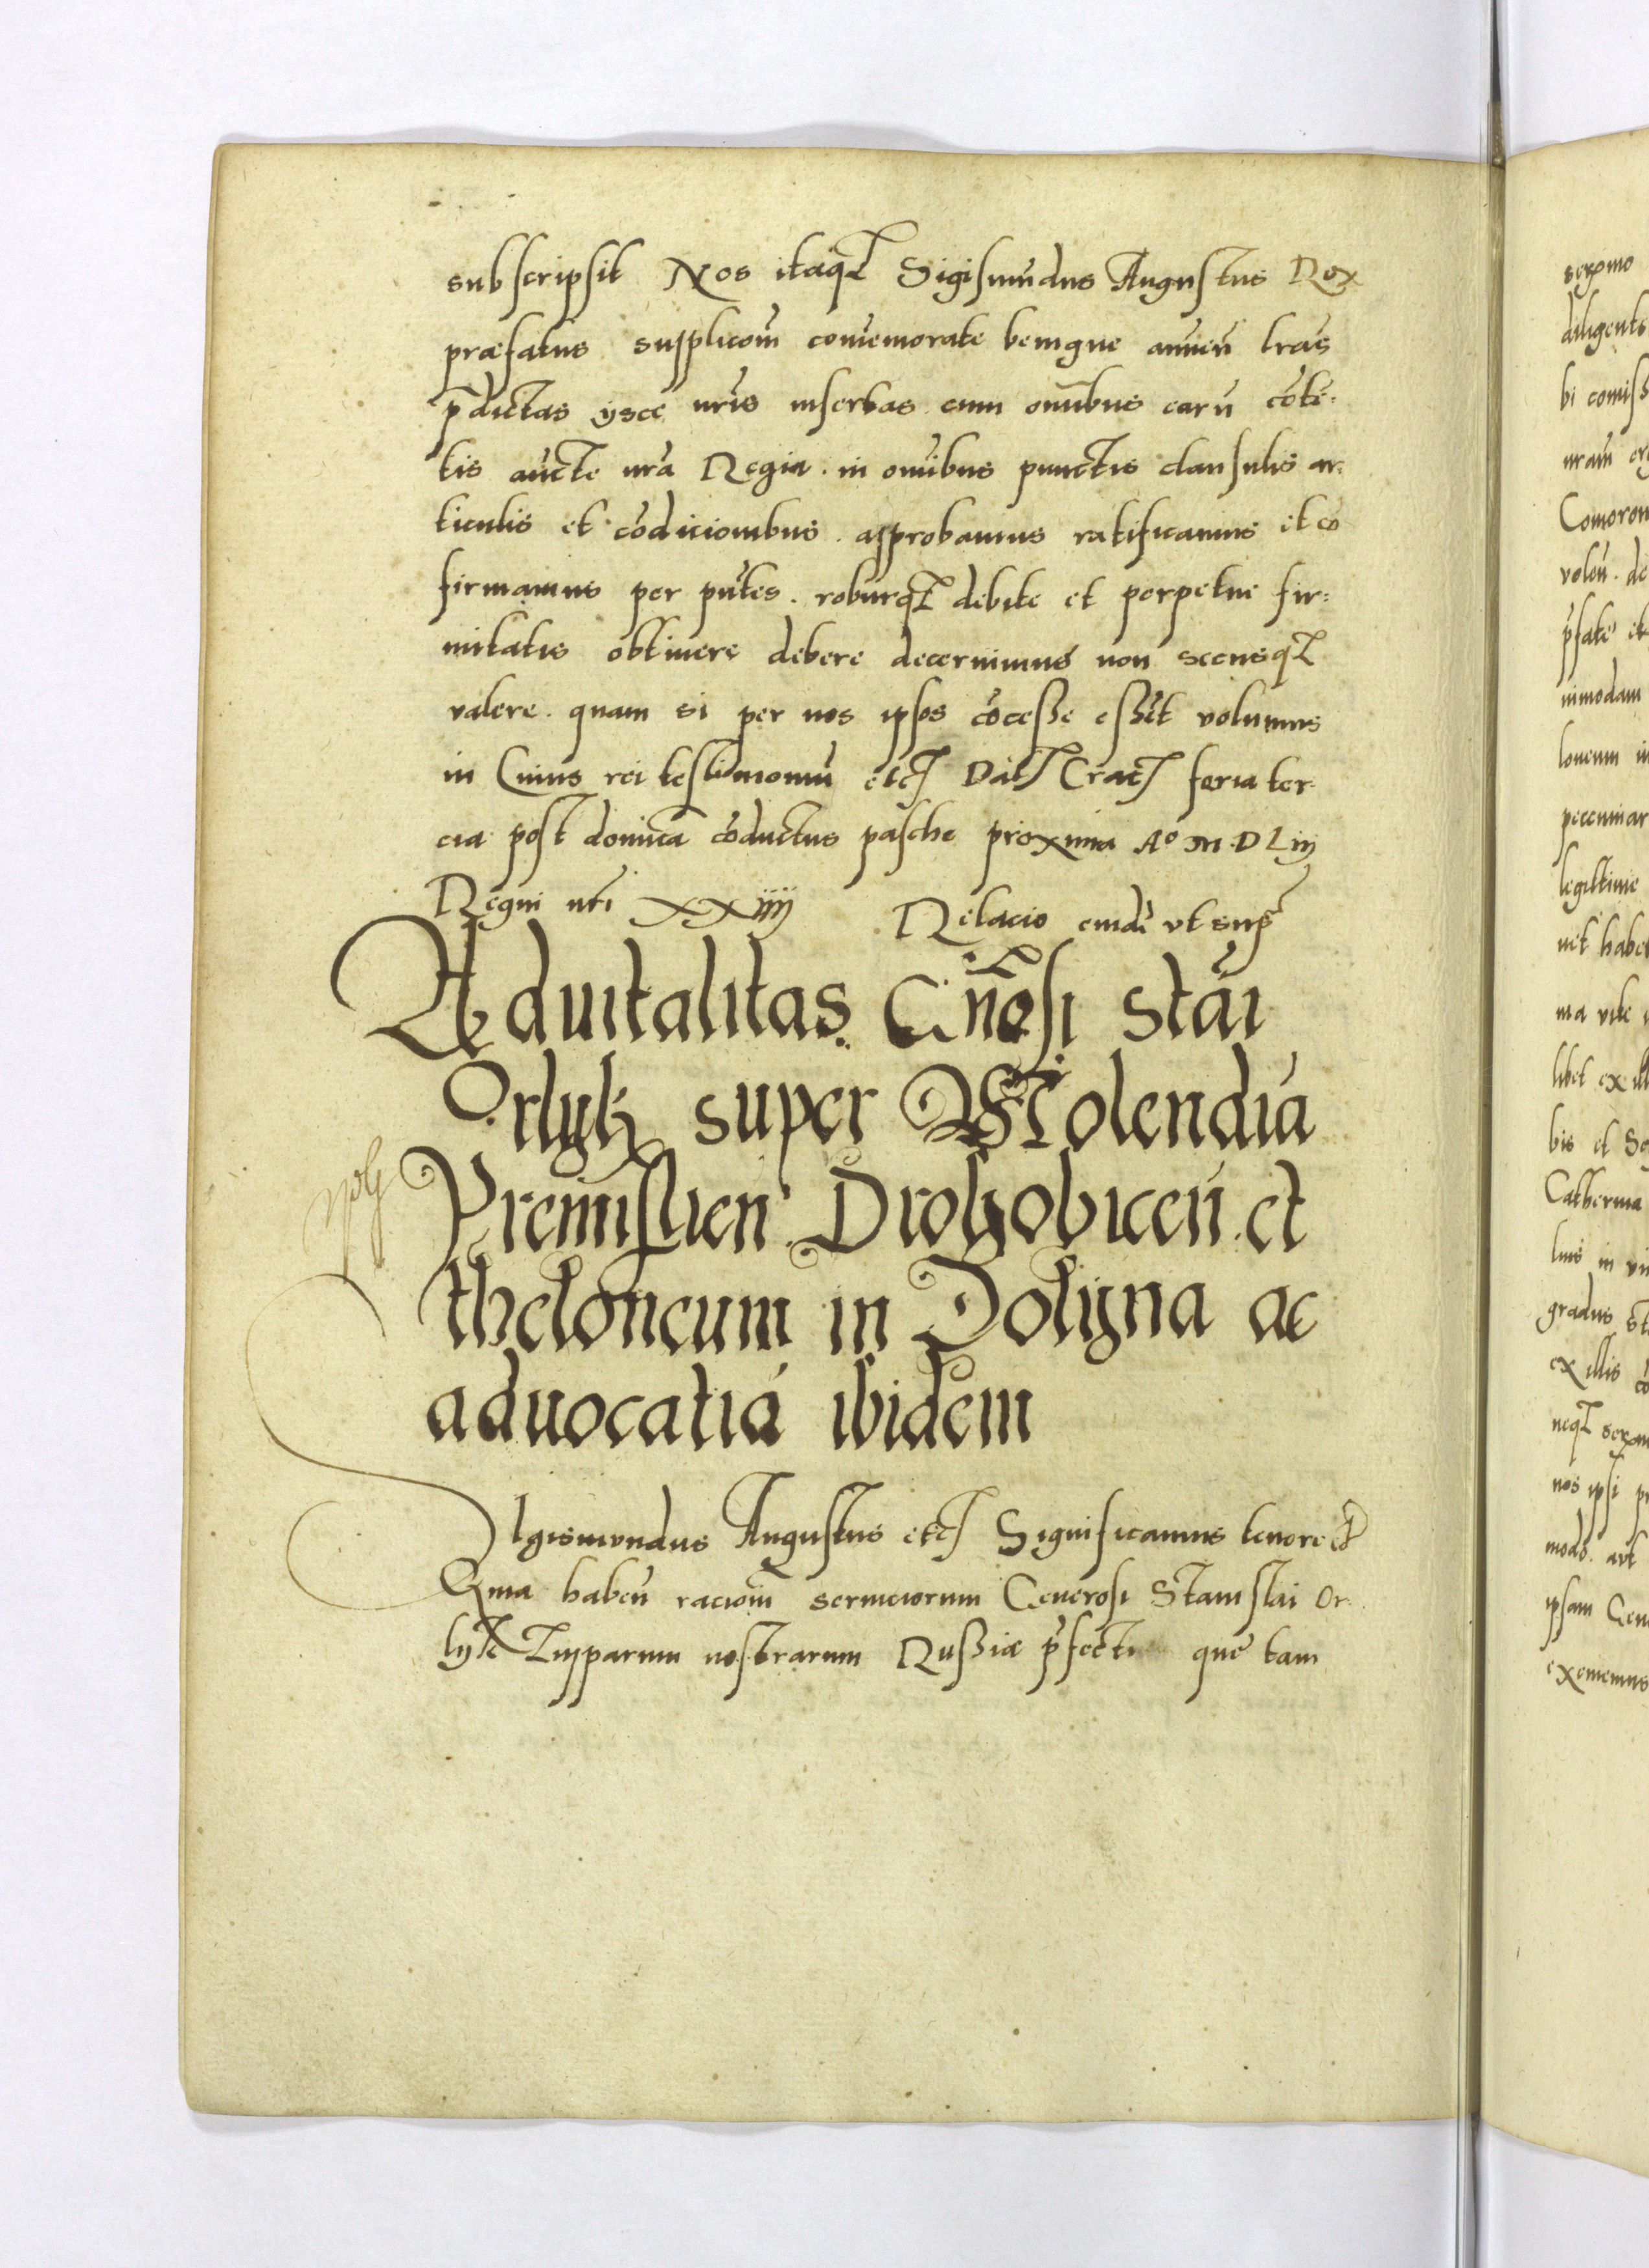 subscripsit Nos itaq₃ Sigismūdus Augustus Rex
præfatus supplicōni com̄emorate benigne annuen̄ lrās
p̄dictas ijsce nr̄is insertas cum om̄ibus earū cōtē-
tis aūcte nrā Regia. in om̄ibus punctis clausulis ar-
ticulis et cōdicionibus. approbamus ratificamus et cō
firmamus per pn̄tes. roburq₃ debite et perpetue fir-
mitatis obtinere debere decernimus non secusq₃
valere. quam si per nos ipsos cōcesse essēt volumus
in Cuius rei testimoniū etc Dat Crac feria ter-
cia post dominicā cōductus pasche proxima Aº M.D Liij
Regni nrī XXiiij Relacio eiusdē vt supra
Aduitalitas Gn̄osi Stāi
Orlyk super Molendiā
Premislien. Drohobicen̄. et
theloneum in Dolijna ac
aduocatiā ibidem
SIgismvndus Augustus etc Significamus tenore etc
Quia haben̄ raciōm seruiciorum Generosi Stanislai Or-
lyk Zupparum nostrarum Russiæ p̄fecti que tam
sexmo
diligente
bi comiss
nram
Comoron
volen̄. de
p̄fate et
nimodam
loneum in
pecuniar
legittime
net haben
ma vite
libet ex ill
bis et
Catherina
lius in vi
gradus
ex illis
neq₃
nos ipsi
modo. aut
ipsam Gen
eximemus